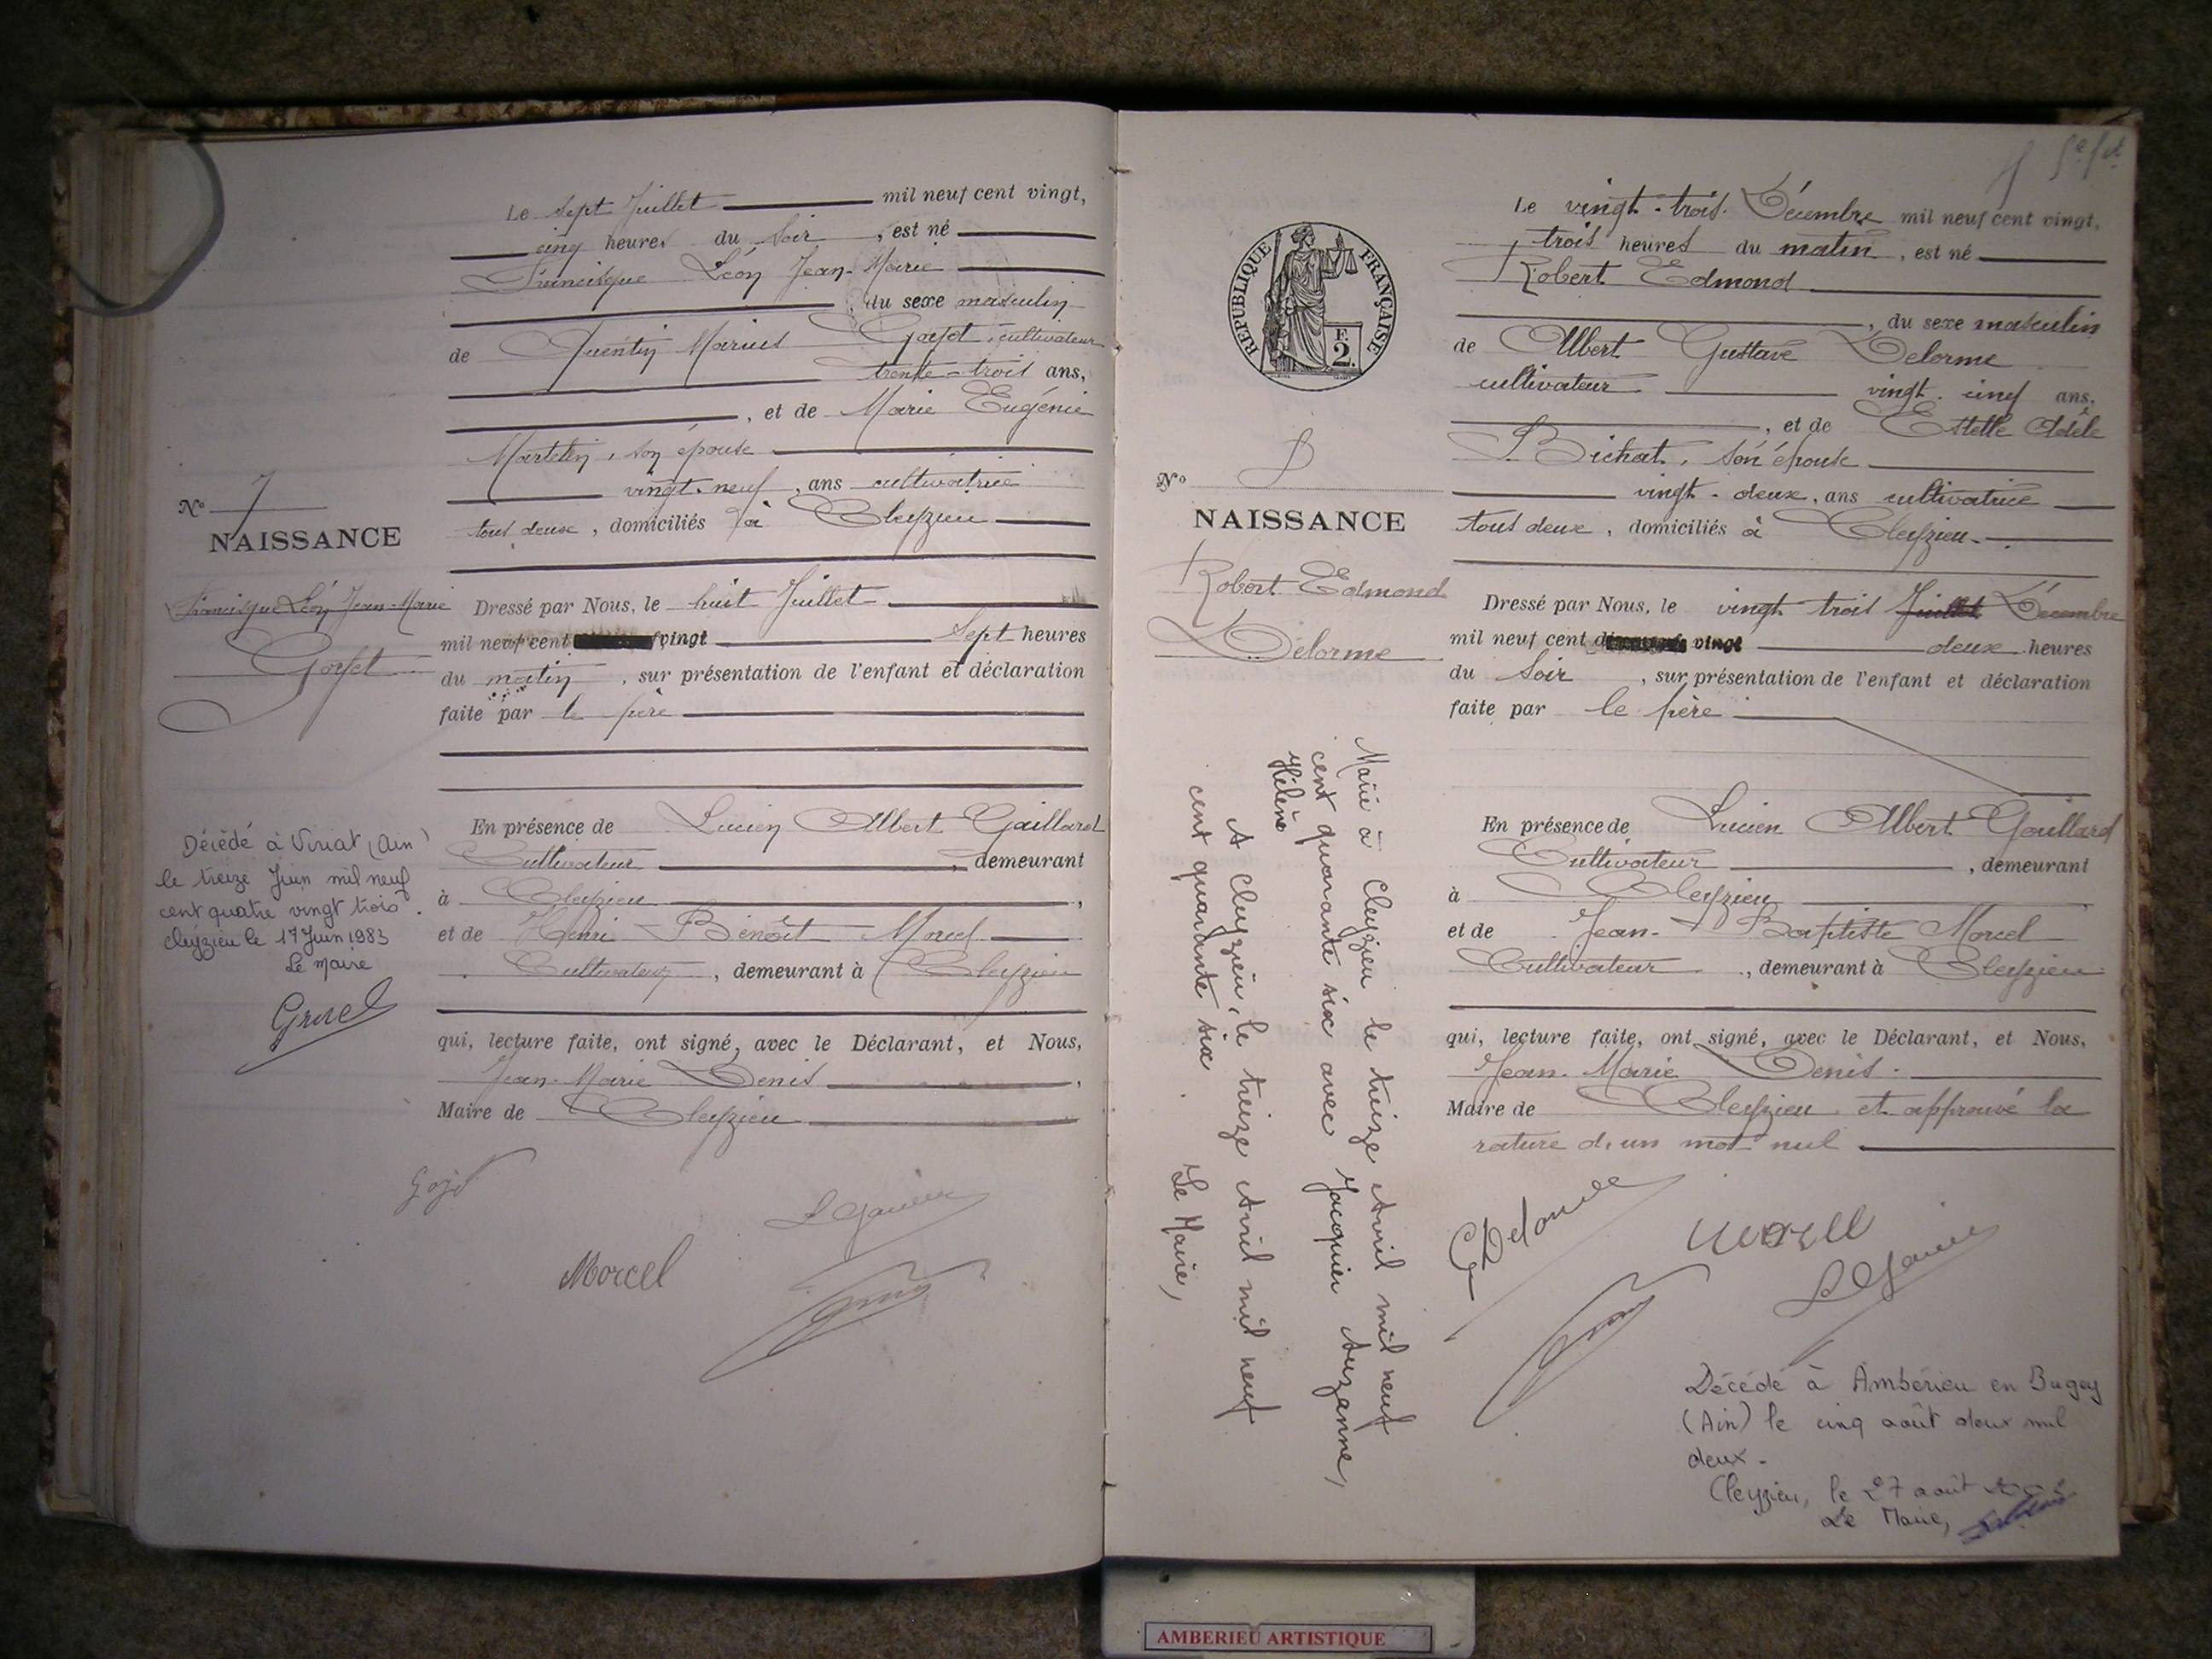 Le sept Juillet mil neuf cent vingt,
cinq heures du soir, est né
Francisque Léon Jean-Marie
, du sexe masculin
de Quentin Marius Goyet, cultivateur
trente-trois ans,
, et de Marie Eugénie
Martelin, son épouse
vingt-neuf, ans cultivatrice
tous deux, domiciliés à Cleyzieu
N° 7
NAISSANCE
Francisque Léon Jean-Marie
Goyet
Dressé par Nous, le huit Juillet
mil neuf cent vingt sept heures
du matin, sur présentation de l'enfant et déclaration
faite par le père
En présence de Lucien Albert Gaillard
Cultivateur, demeurant
à Cleyzieu,
et de Henri Benoît Morcel
Cultivateur, demeurant à Cleyzieu
qui, lecture faite, ont signé, avec le Déclarant, et Nous,
Jean-Marie Denis,
Maire de Cleyzieu
Décédé à Viriat (Ain)
le treize Juin mil neuf
cent quatre vingt trois.
Cleyzieu le 17 Juin 1983
Le Maire
Morcel
5e ft
Le vingt-trois Décembre mil neuf cent vingt,
trois heures du matin, est né
Robert Edmond
, du sexe masculin
de Albert Gustave Delorme
cultivateur vingt-cinq ans,
, et de Estelle Adèle
Bichat, son épouse
vingt-deux, ans cultivatrice
tous deux, domiciliés à Cleyzieu
REPUBLIQUE FRANÇAISE
F.
2.
N° 8
NAISSANCE
Robert Edmond
Delorme
Dressé par Nous, le vingt trois Juillet Décembre
mil neuf cent vingt deux heures
du soir, sur présentation de l'enfant et déclaration
faite par le père
En présence de Lucien Albert Gaillard
Cultivateur, demeurant
à Cleyzieu
et de Jean-Baptiste Morcel
Cultivateur, demeurant à Cleyzieu
qui, lecture faite, ont signé, avec le Déclarant, et Nous,
Jean-Marie Denis.
Maire de Cleyzieu et approuvé la
rature d'un mot nul
Marié à Cleyzieu le treize Avril mil neuf
cent quarante six avec Jacquier Suzanne,
Hélène
A Cleyzieu, le treize Avril mil neuf
cent quarante six Le Maire,
G Delorme
Décédé à Ambérieu en Bugey
(Ain) le cinq août deux mil
deux.
Cleyzieu, le 27 août
Le Maire,
AMBERIEU ARTISTIQUE